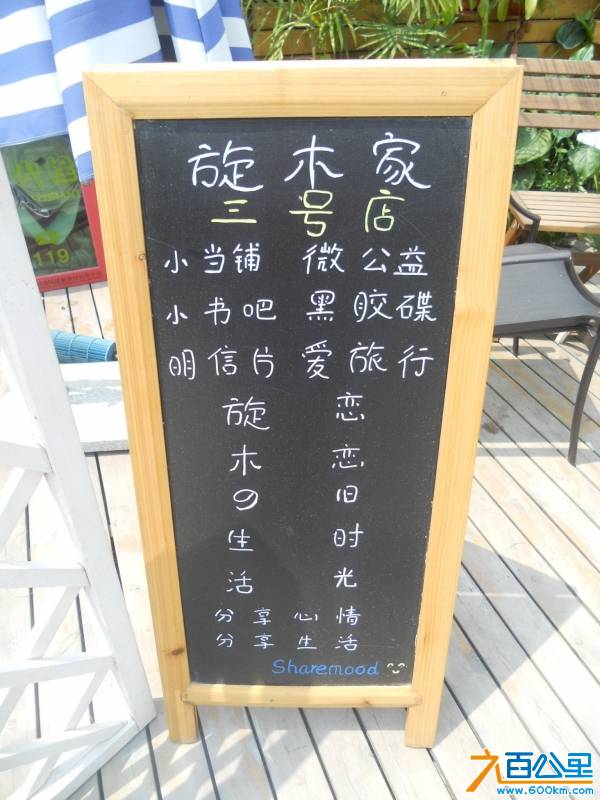 旋木家
三号店
小当铺 微公益
小书吧 黑胶碟
明信片 爱旅行
旋木の生活
恋恋旧时光
分享心情
分享生活
Sharemood
119
六百公里
www.600km.com